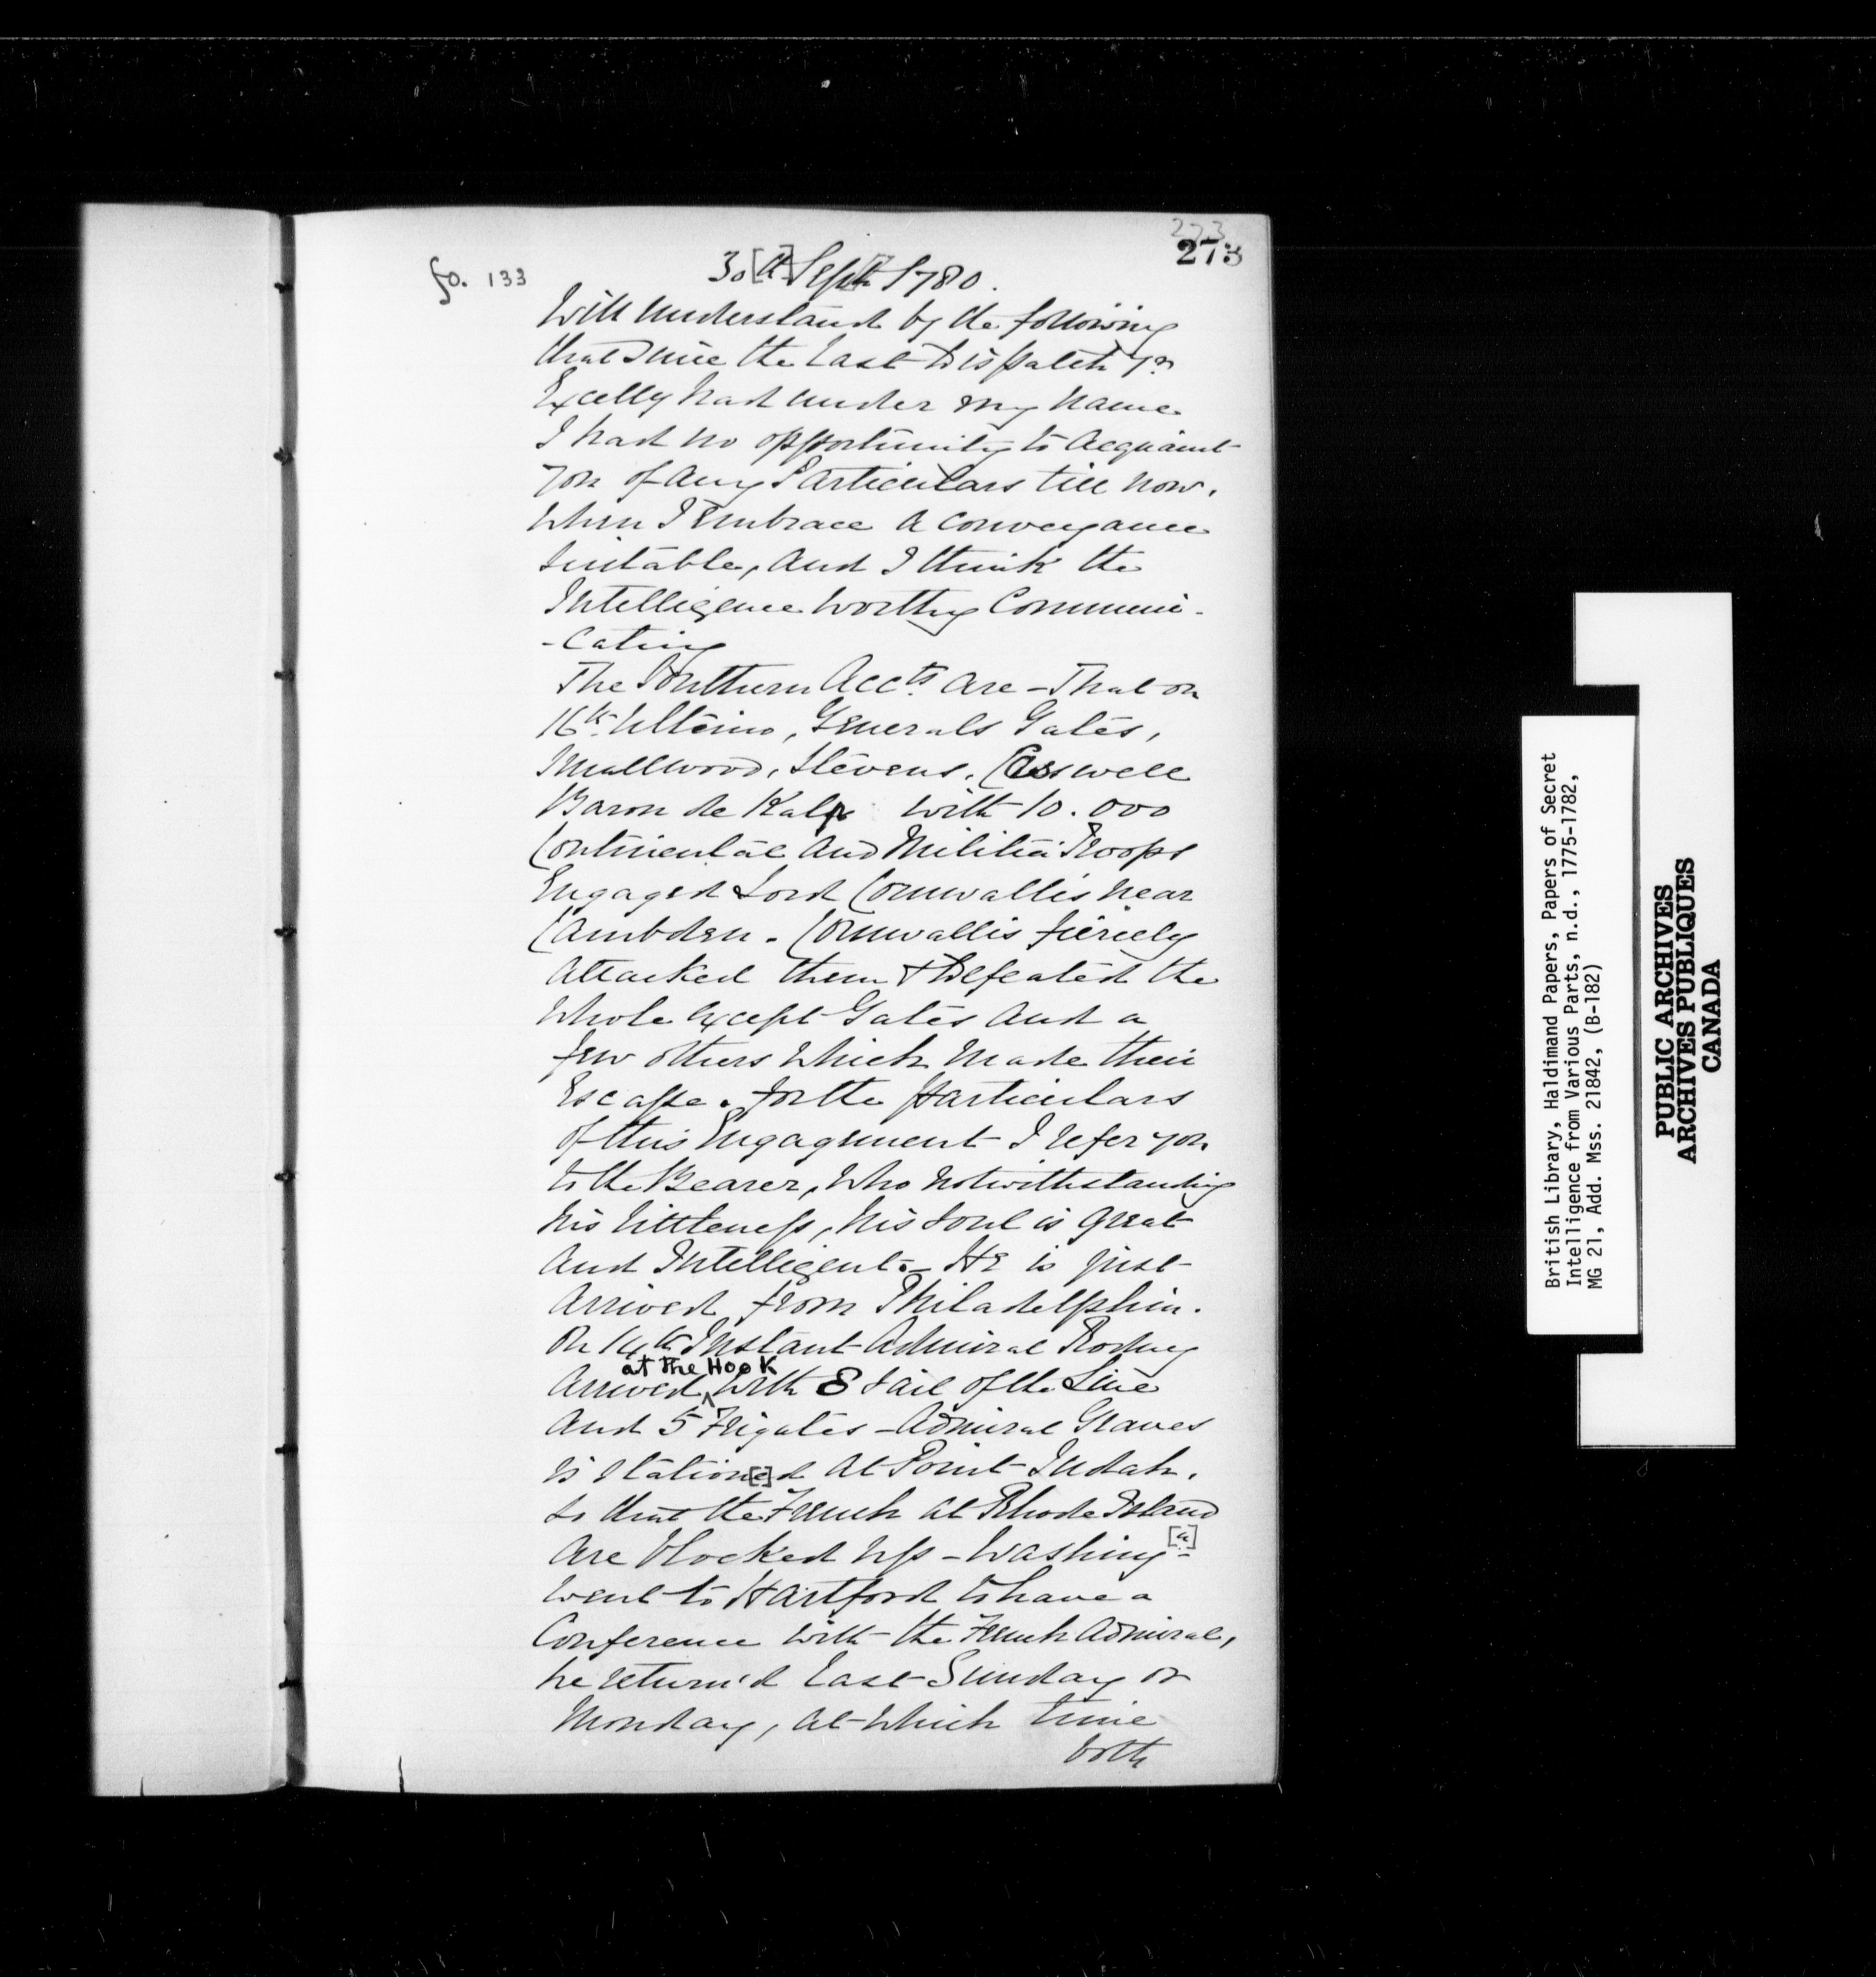 223
273
fo. 133
30[th] Sept[r] 1780.
Will understand by the following
that Since the Last Dispatch yr
Excelly had under my name
I had no opportunity to Acquaint
you of any Particulars till now.
When I Embrace a Conveyance
Suitable, And I think the
Intelligence worthy Communi-
-cating
The Southern Accts. Are - That on
16th Ultimo, Generals Gates,
Smallwood, Stevens, Caswell
Baron de Kalb with 10.000
Continental And Militia Troops
Engaged Lord Cornwallis near
Cambden. Cornwallis fiercely
Attacked them & Defeated the
Whole Except Gates And a
few others which Made their
Escape. For the Particulars
of this Engagement I refer you
to the Bearer, Who Notwithstanding
his littleness, his Soul is Great
And Intelligent. - He is just
Arrived from Philadelphia.
On 14th Instant Admiral Rodney
at the Hook
Arrived ^ with 8 Sail of the Line
And 5 Frigates - Admiral Graves
is Station[e]d At Point Judah.
So that the French at Rhode Island
Are blocked up - Washing- [a]
went to Hartford to have a
Conference with the French Admiral,
he return'd Last Sunday or
Monday, at which time
both
British Library, Haldimand Papers, Papers of Secret
Intelligence from Various Parts, n.d., 1775-1782,
MG 21, Add. Mss. 21842, (B-182)
PUBLIC ARCHIVES
ARCHIVES PUBLIQUES
CANADA